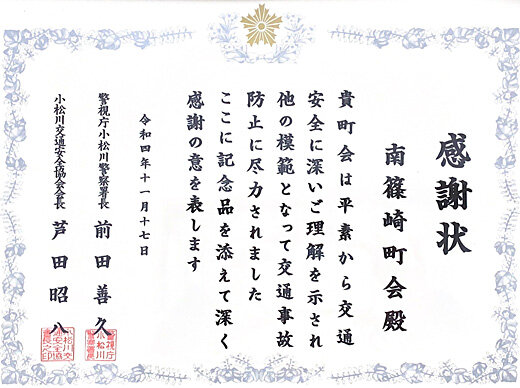 感謝状
南篠崎町会殿
貴町会は平素から交通
安全に深いご理解を示され
他の模範となって交通事故
防止に尽力されました
ここに記念品を添えて深く
感謝の意を表します
令和四年十一月十七日
警視庁小松川警察署長 前田善久
小松川交通安全協会会長 芦田昭八